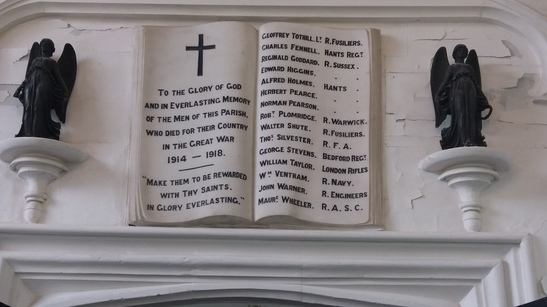 To the Glory of God
and in Everlasting Memory
of the Men of this Parish,
who died for their Country
in the Great War
1914 — 1918.
"Make them to be rewarded
with Thy Saints,
in Glory Everlasting."
Geoffrey Tothill. Lt R. Fusiliers.
Charles Fennell. Hants Regt
Reginald Goddard. R. Sussex.
Edward Higgins. "
Alfred Holmes. Hants "
Herbert Pearce. "
Norman Pearson. "
Robt Plomridge. R. Warwick.
Walter Shute. R. Fusiliers.
Thos Silvester. R. F. A.
George Stevens. Bedford Regt
William Taylor. London Rifles
Wm Ventham. R. Navy.
John Warner. R. Engineers
Maurce Wheeler. R. A. S. C.